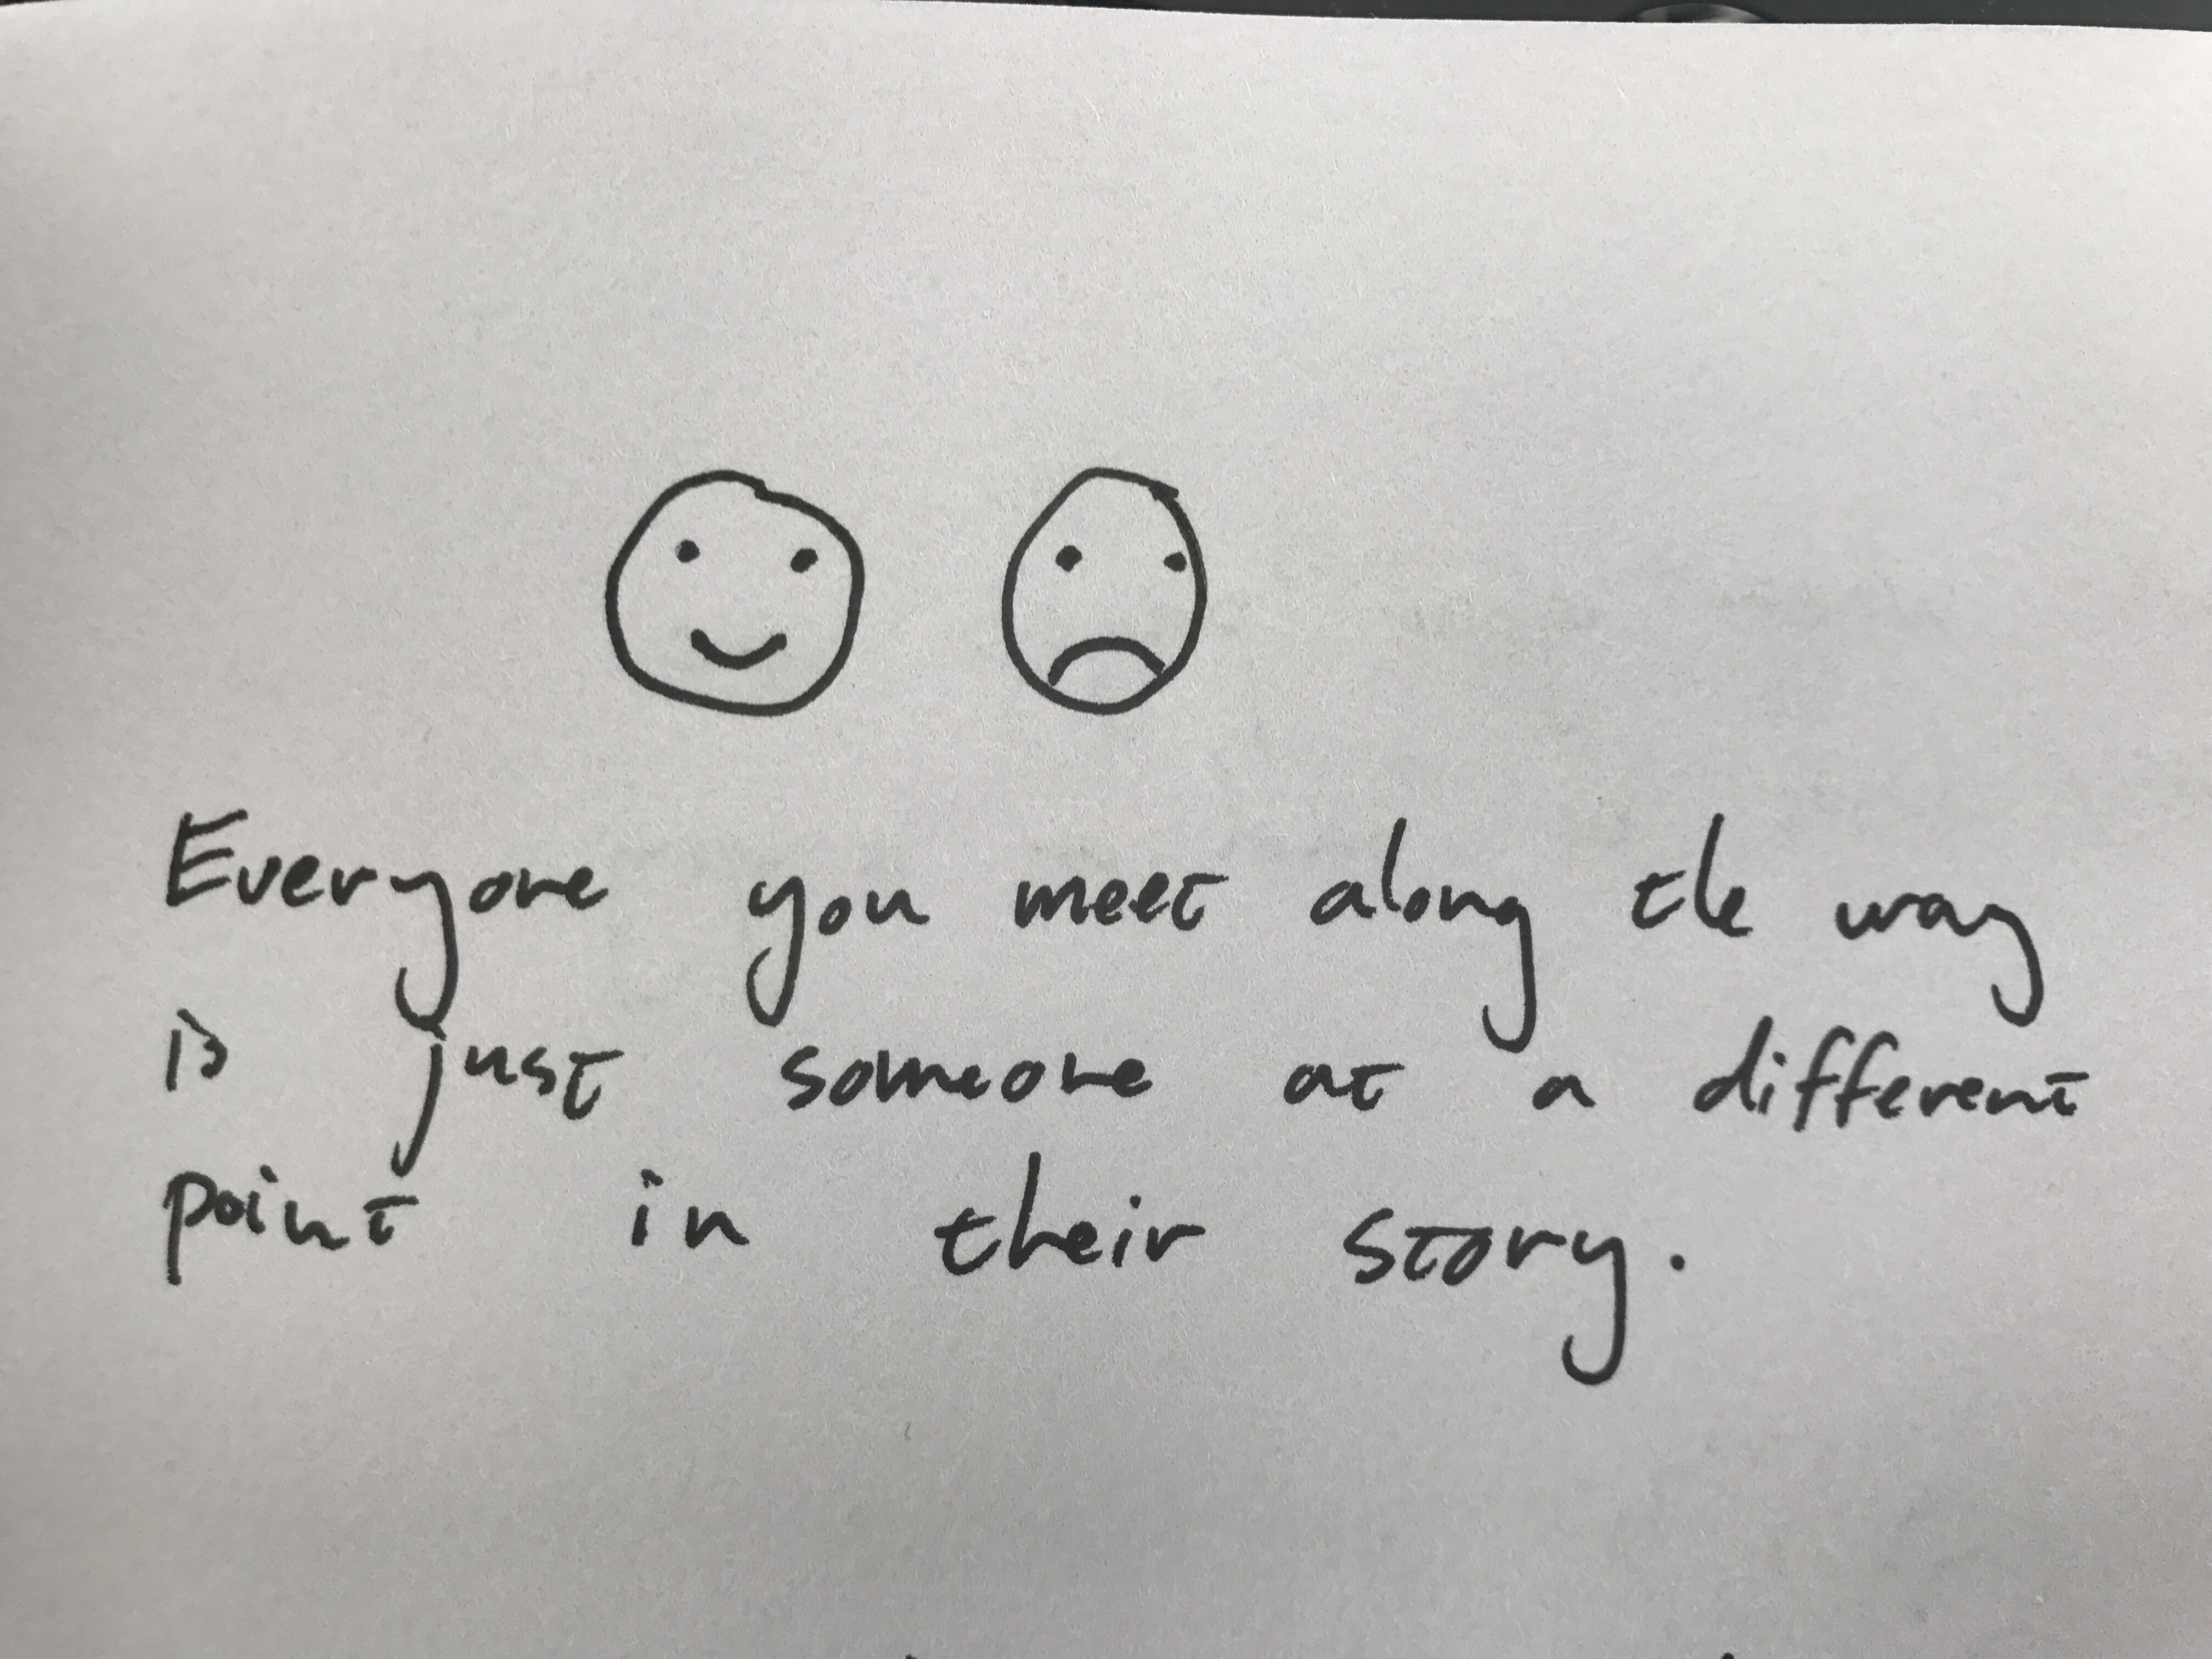 Everyone you meet along the way
is just someone at a different
point in their story.